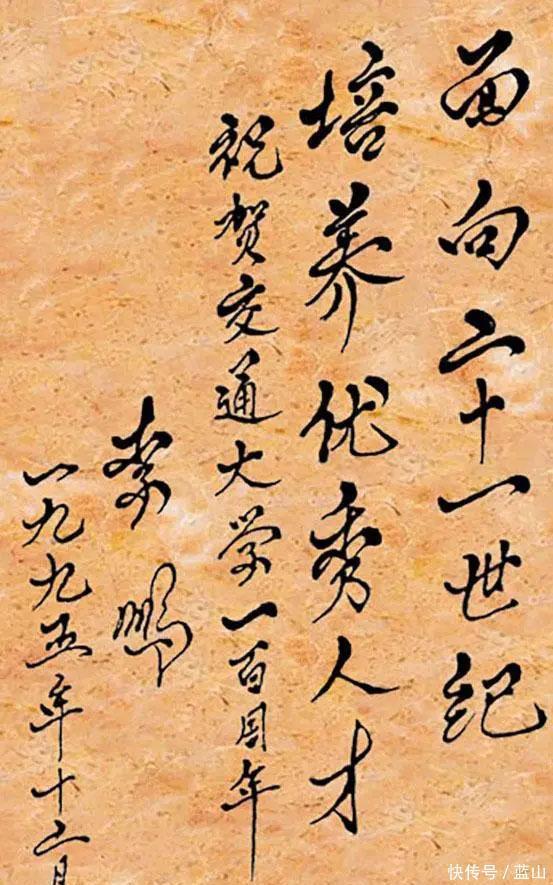 面向二十一世纪
培养优秀人才
祝贺交通大学一百周年
李鹏
一九九五年十二月
快传号/蓝山